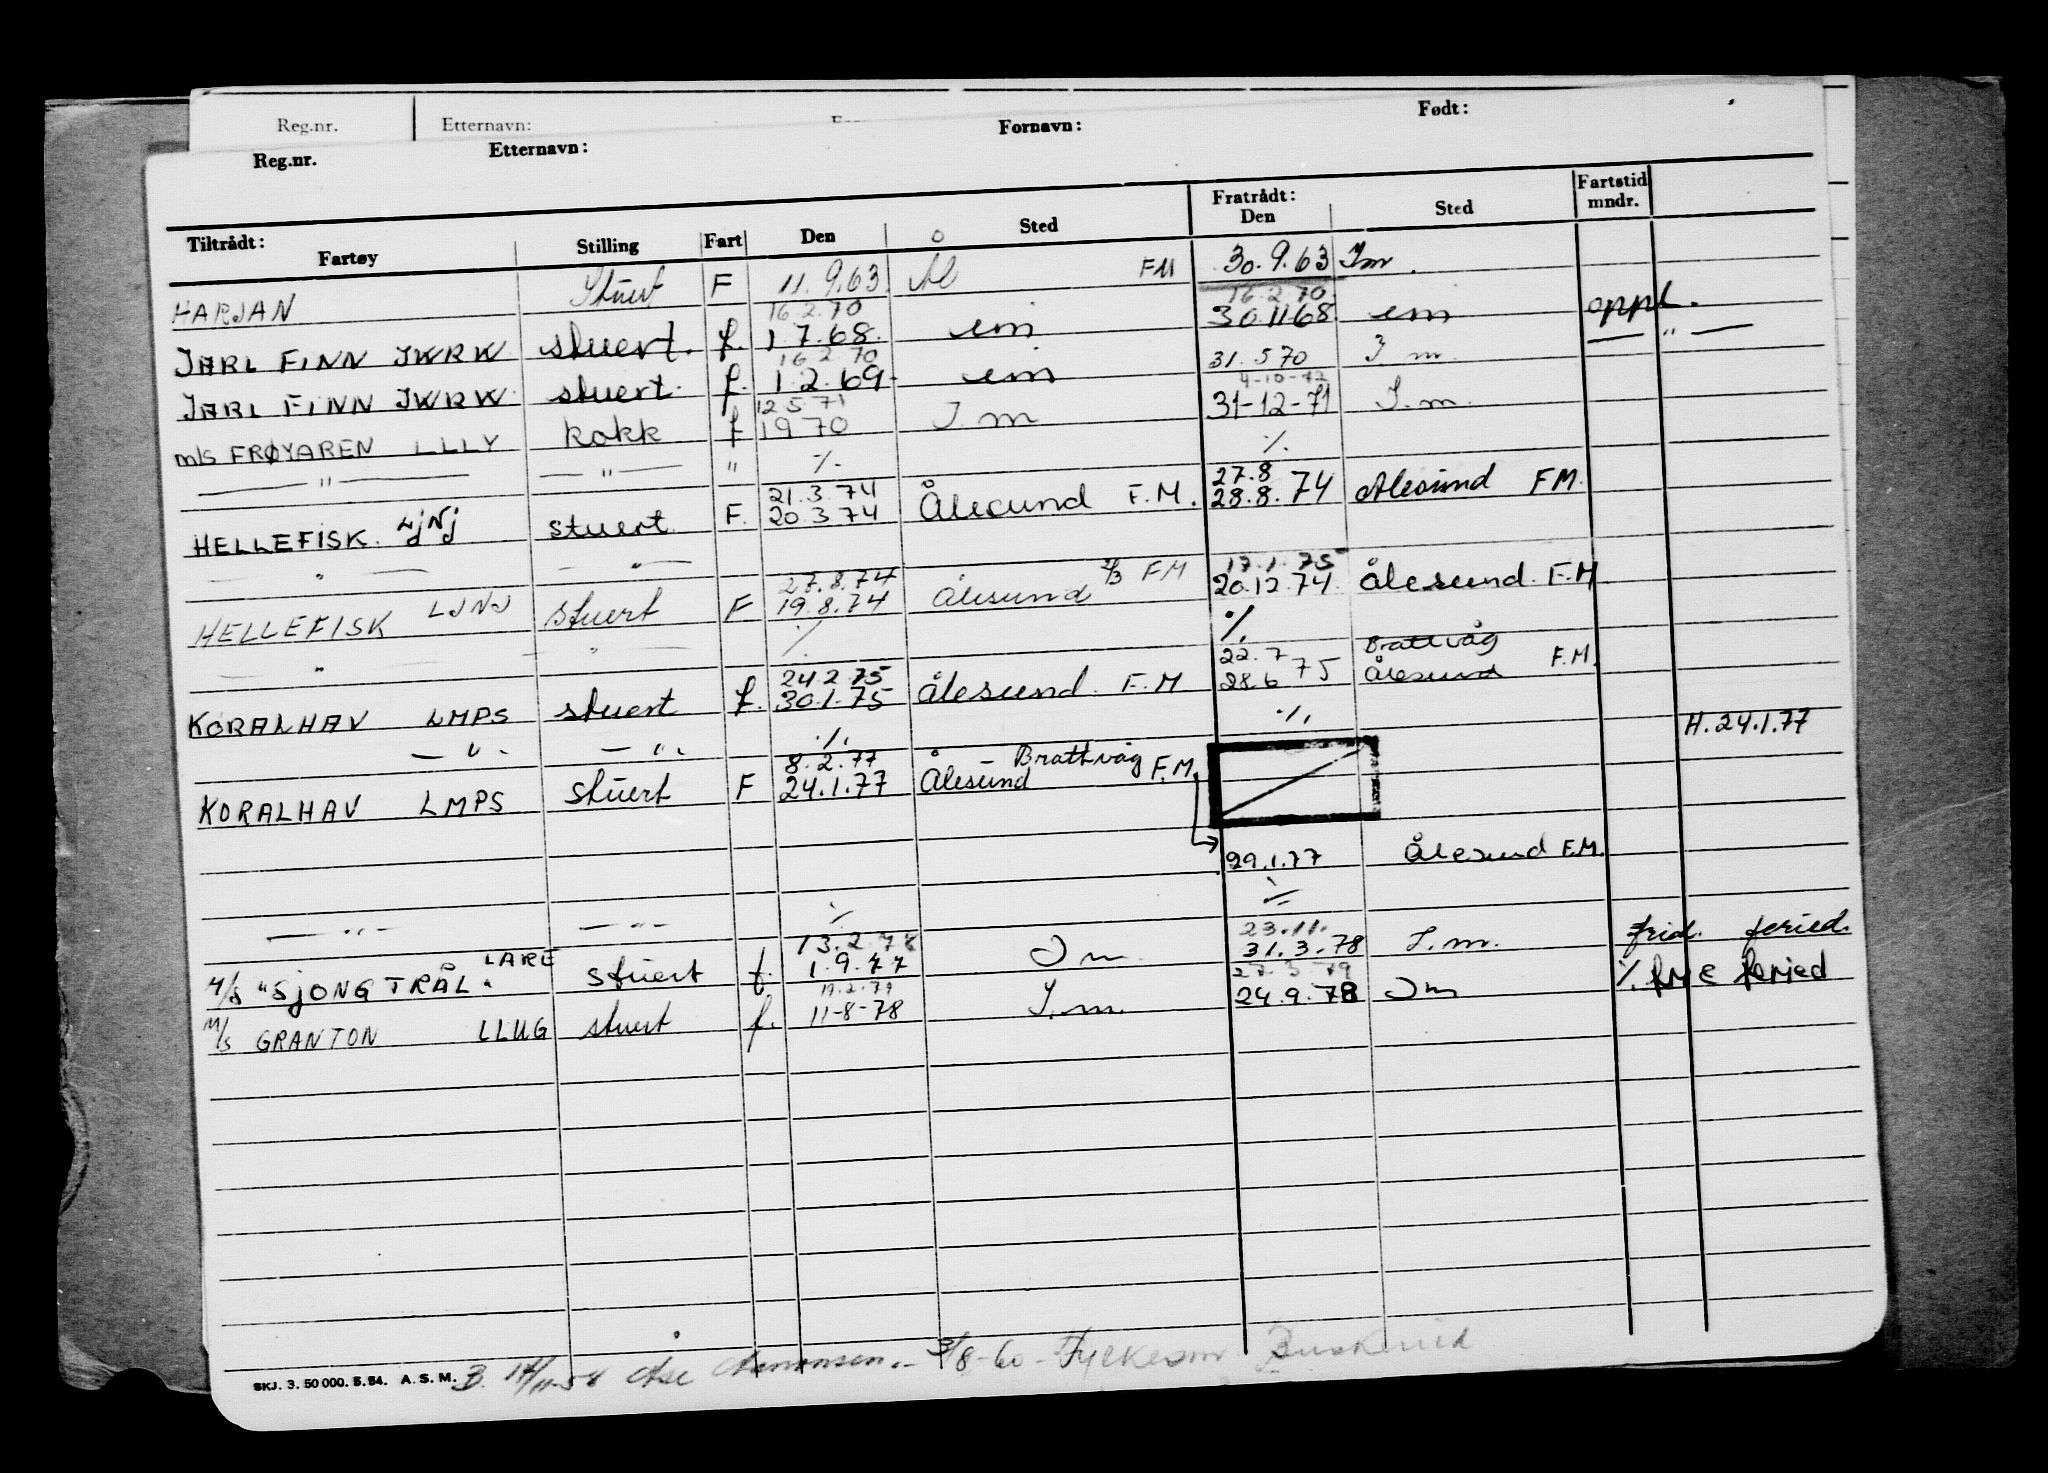 Reg.nr. Etternavn:
Reg.nr. Etternavn: Fornavn: Født:
Tiltrådt: Fratrådt: Fartstid
Fartøy Stilling Fart Den Sted Den Sted mndr.
HARJAN Stuert F 11.9.63 Ål FM 30.9.63 Im.
16.2.70 16.2.70
JARL FINN JWRW stuert. f. 1.7.68. em 30.11.68 em oppl.
16.2.70
JARL FINN JWRW stuert. f. 1.2.69. em 31.5.70 I.m. — " —
12.5.71 4-10-72
m/s FRØYAREN LLLY kokk f 1970 I.m 31-12-71 I.m.
— " — — " — " ./. ./.
21.3.74 27.8
HELLEFISK. LJNJ stuert. F. 20.3.74 Ålesund F.M. 28.8.74 Ålesund FM.
— " — — " —
27.8.74 17.1.75
HELLEFISK LJNJ stuert F 19.8.74 Ålesund FM 20.12.74. Ålesund F.M
— " — — " — ./. ./.
24.2.75 22.7 Brattvåg
KORALHAV LMPS stuert f. 30.1.75 Ålesund F.M 28.6 75 Ålesund F.M.
— " - — " - ./. ./. H.24.1.77
8.2.77 Brattvåg
KORALHAV LMPS stuert F 24.1.77 Ålesund F.M.
29.1.77 Ålesund F.M.
— " — — " — ./. ./.
LARE 13.2.78 23.11.
M/S "SJONGTRÅL" stuert f. 1.9.77 Im. 31.3.78 I.m. frid. feried.
19.2.79 27.3.79
M/S GRANTON LLUG stuert f. 11-8-78 I.m. 24.9.78 Im ./. feried
SKJ. 3. 50 000. 5. 54. A. S. M. B. Åse 3/8-60 - Buskerud